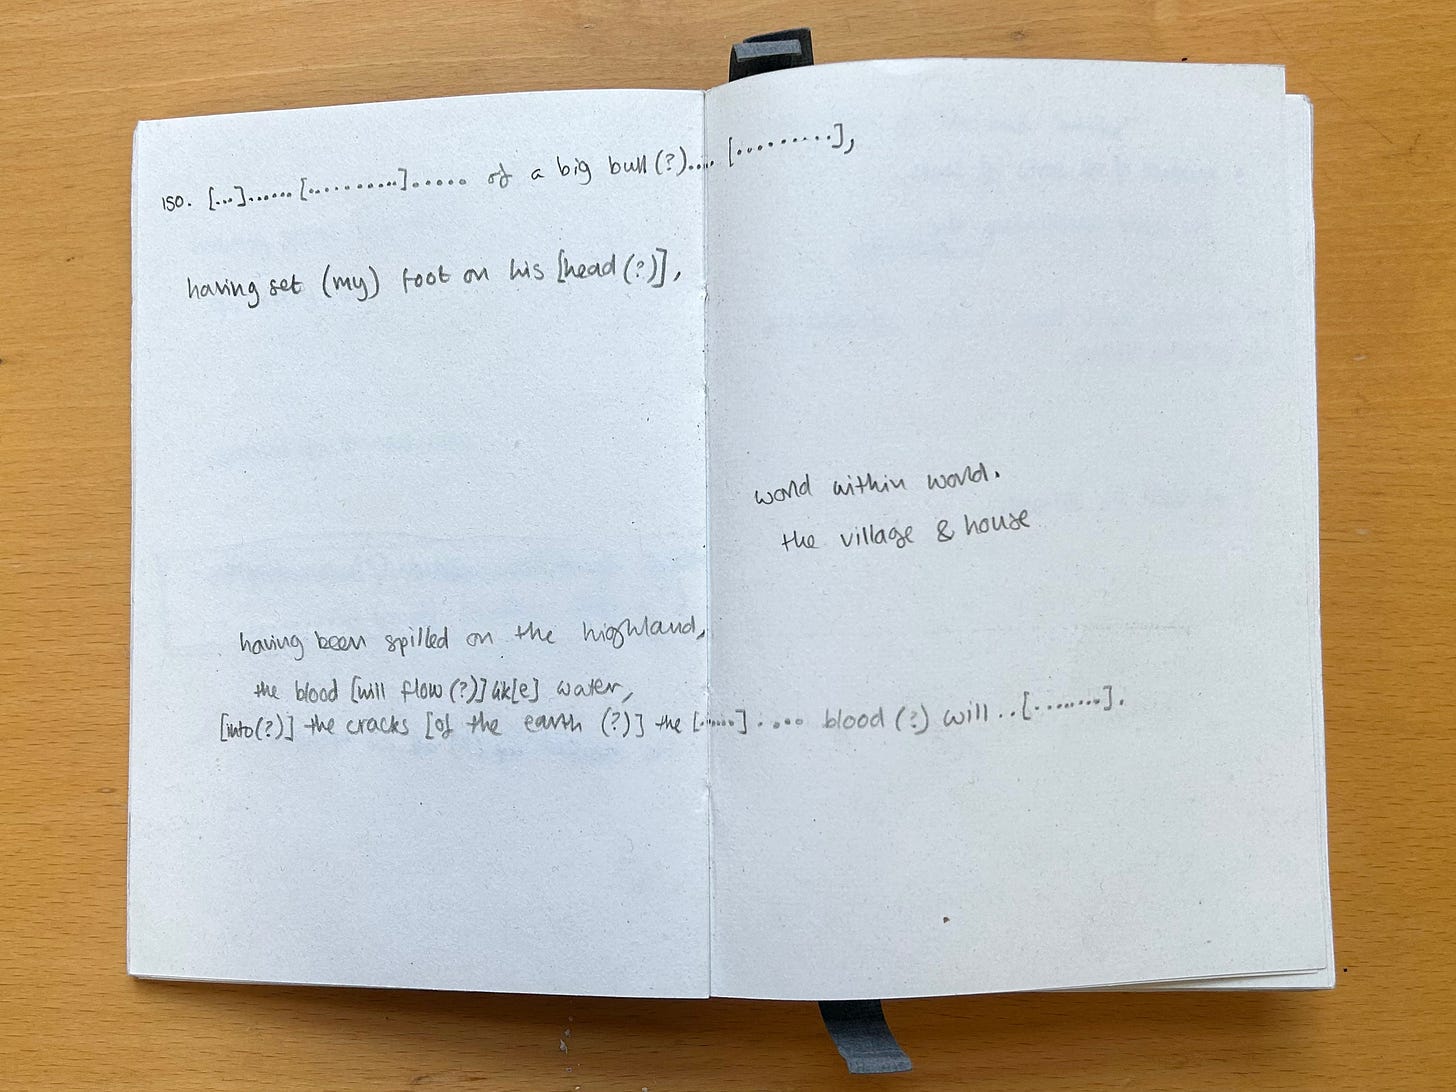 150. [...]......[..........]..... of a big bull (?).... [.........],
having set (my) foot on his [head (?)],
world within world.
the village & house
having been spilled on the highland,
the blood [will flow (?)] lik[e] water,
[into(?)] the cracks [of the earth (?)] the [......] .... blood (?) will .. [........].